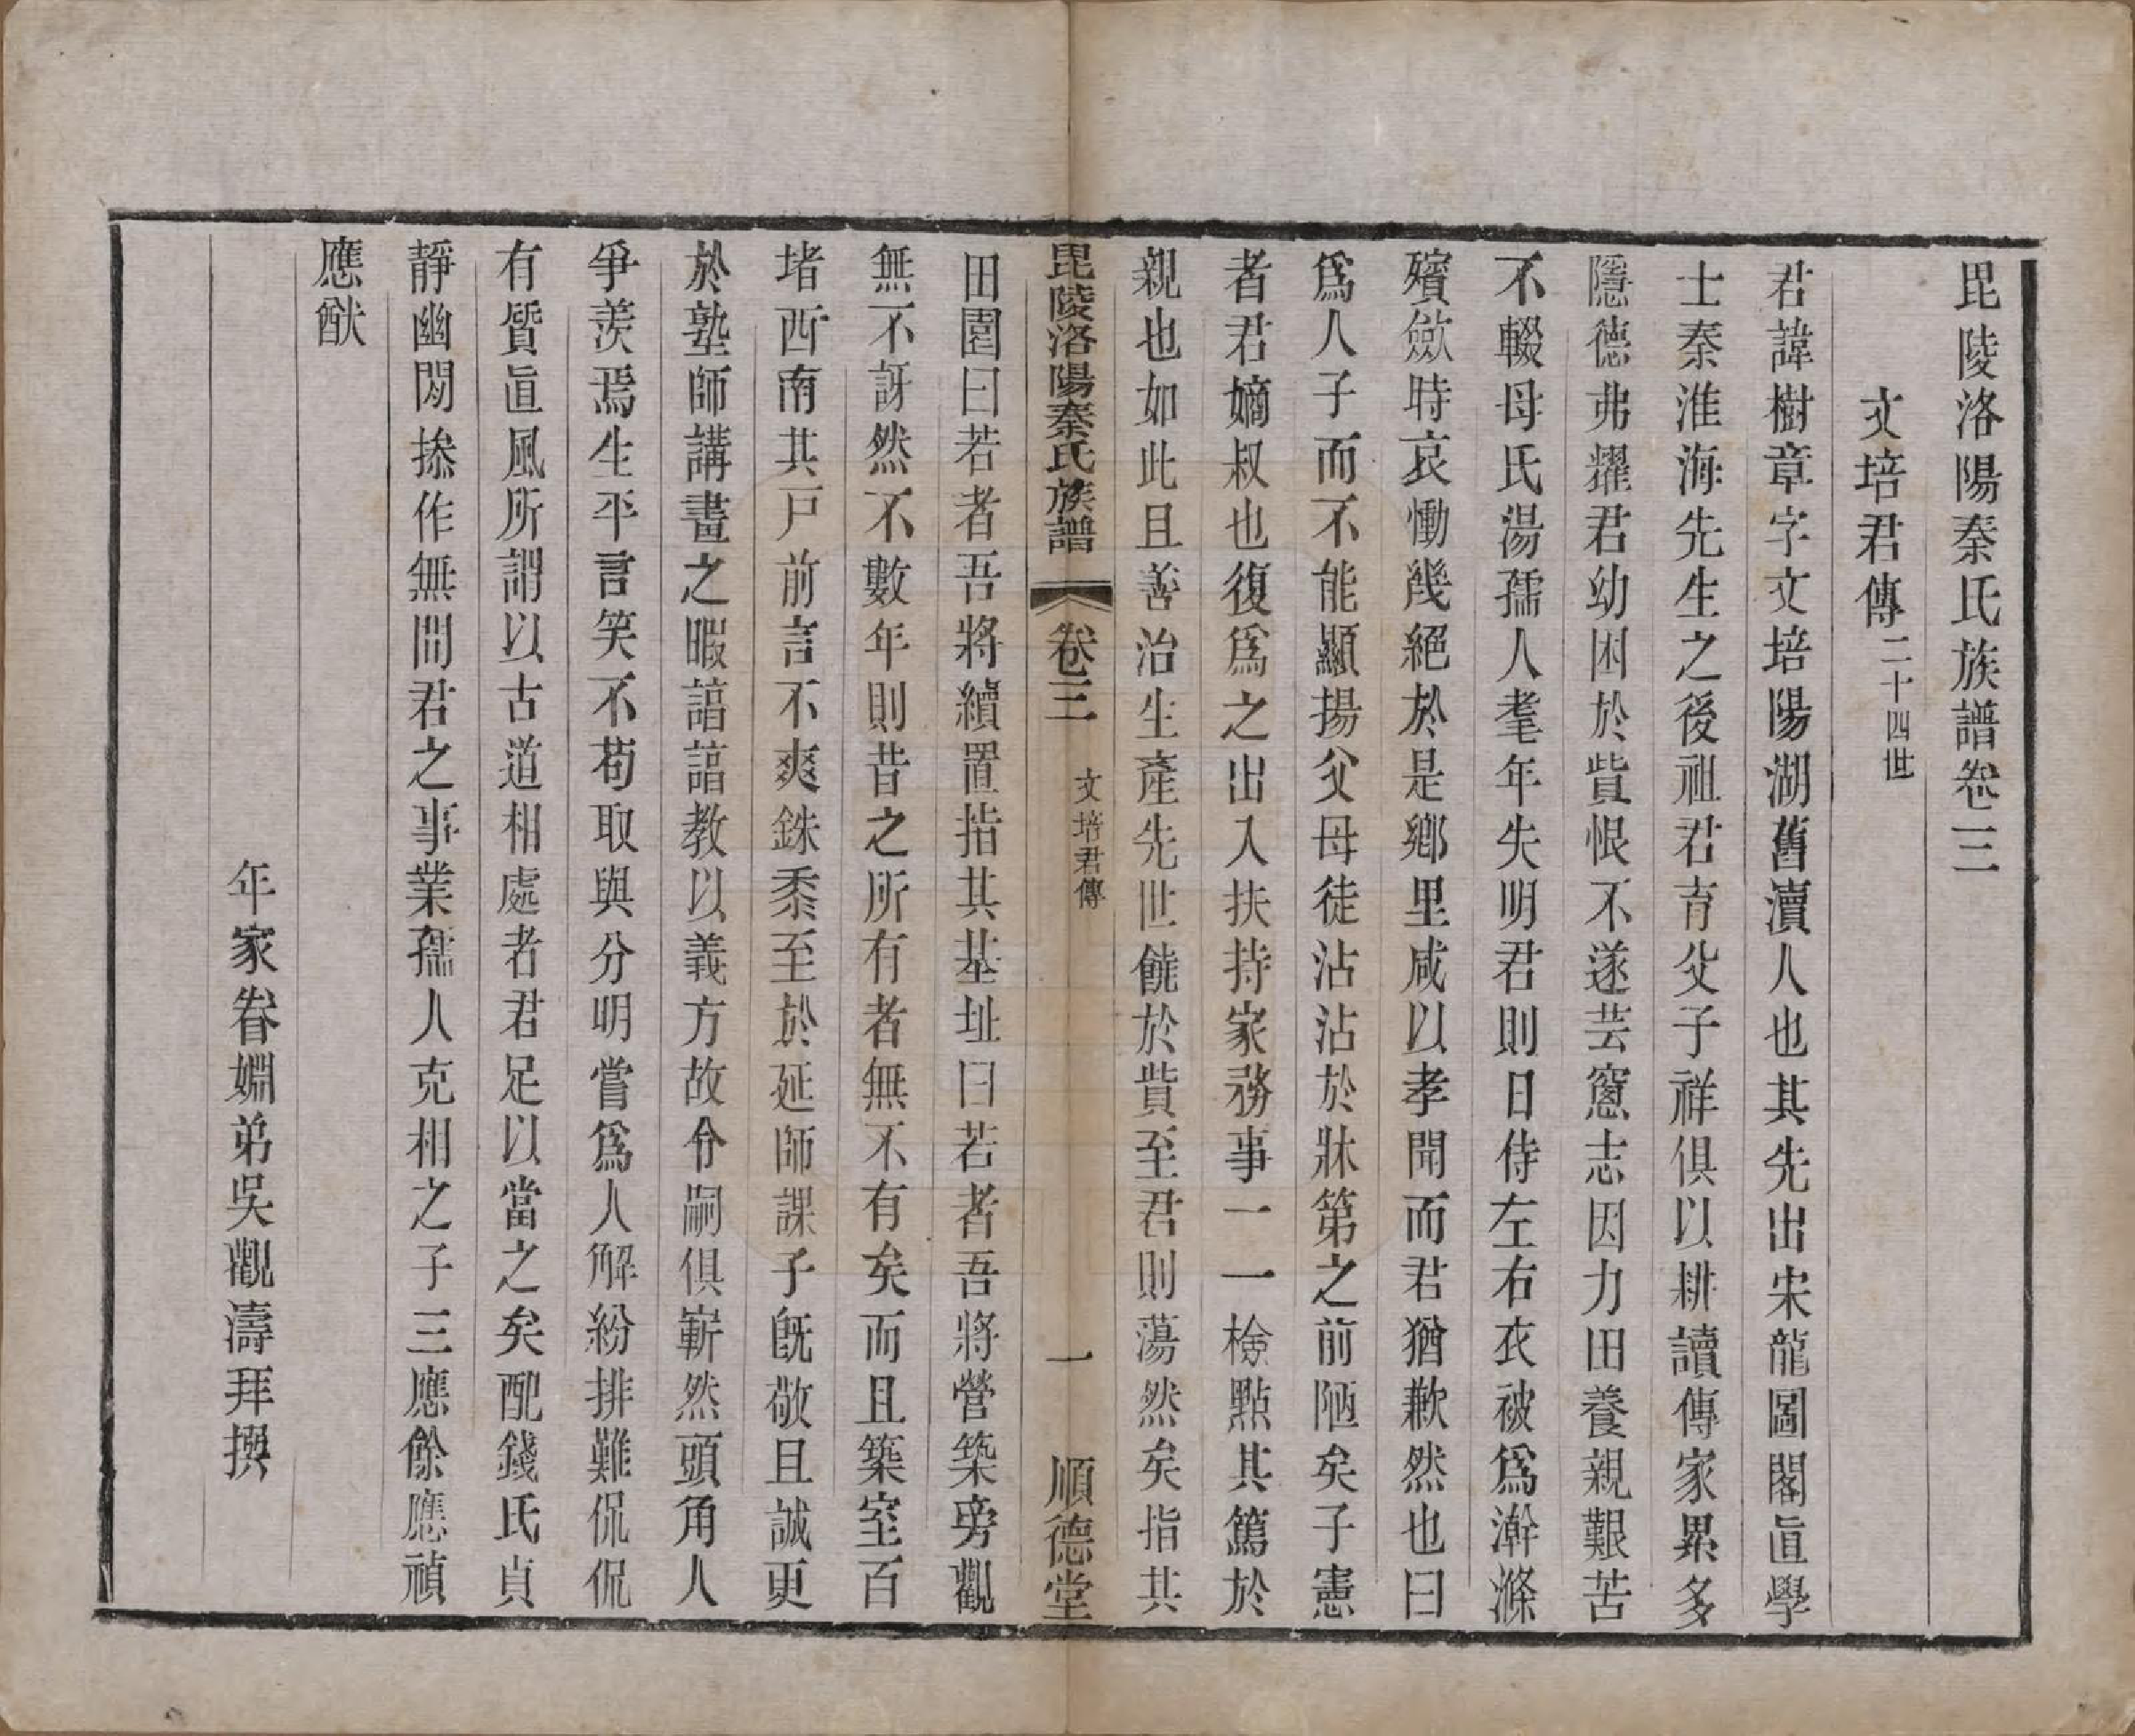 毘陵洛陽秦氏族譜卷三
文培君傳二十四世
君諱樹章字文培陽湖舊瀆人也其先出宋龍圖閣直學
士秦淮海先生之後祖君育父子祥俱以耕讀傳家累多
隱德弗耀君幼困於貲恨不遂芸窻志因力田養親艱苦
不輟母氏湯孺人耄年失明君則日侍左右衣被爲澣滌
殯歛時哀慟幾絕於是鄉里咸以孝聞而君猶歉然也曰
爲人子而不能顯揚父母徒沾沾於牀第之前陋矣子憲
者君嫡叔也復爲之出入扶持家務事一一檢點其篤於
親也如此且善治生產先世饒於貲至君則蕩然矣指其
毘陵洛陽秦氏族譜 卷三 文培君傳 一 順德堂
田園曰若者吾將續置指其基址曰若者吾將營築旁觀
無不訝然不數年則昔之所有者無不有矣而且築室百
堵西南其戸前言不爽銖黍至於延師課子旣敬且誠更
於塾師講畫之暇諳諳教以義方故令嗣俱嶄然頭角人
爭羨焉生平言笑不苟取與分明嘗爲人解紛排難侃侃
有質直風所謂以古道相處者君足以當之矣配錢氏貞
靜幽閑操作無間君之事業孺人克相之子三應餘應禎
應猷
年家眷姻弟吳觀濤拜撰